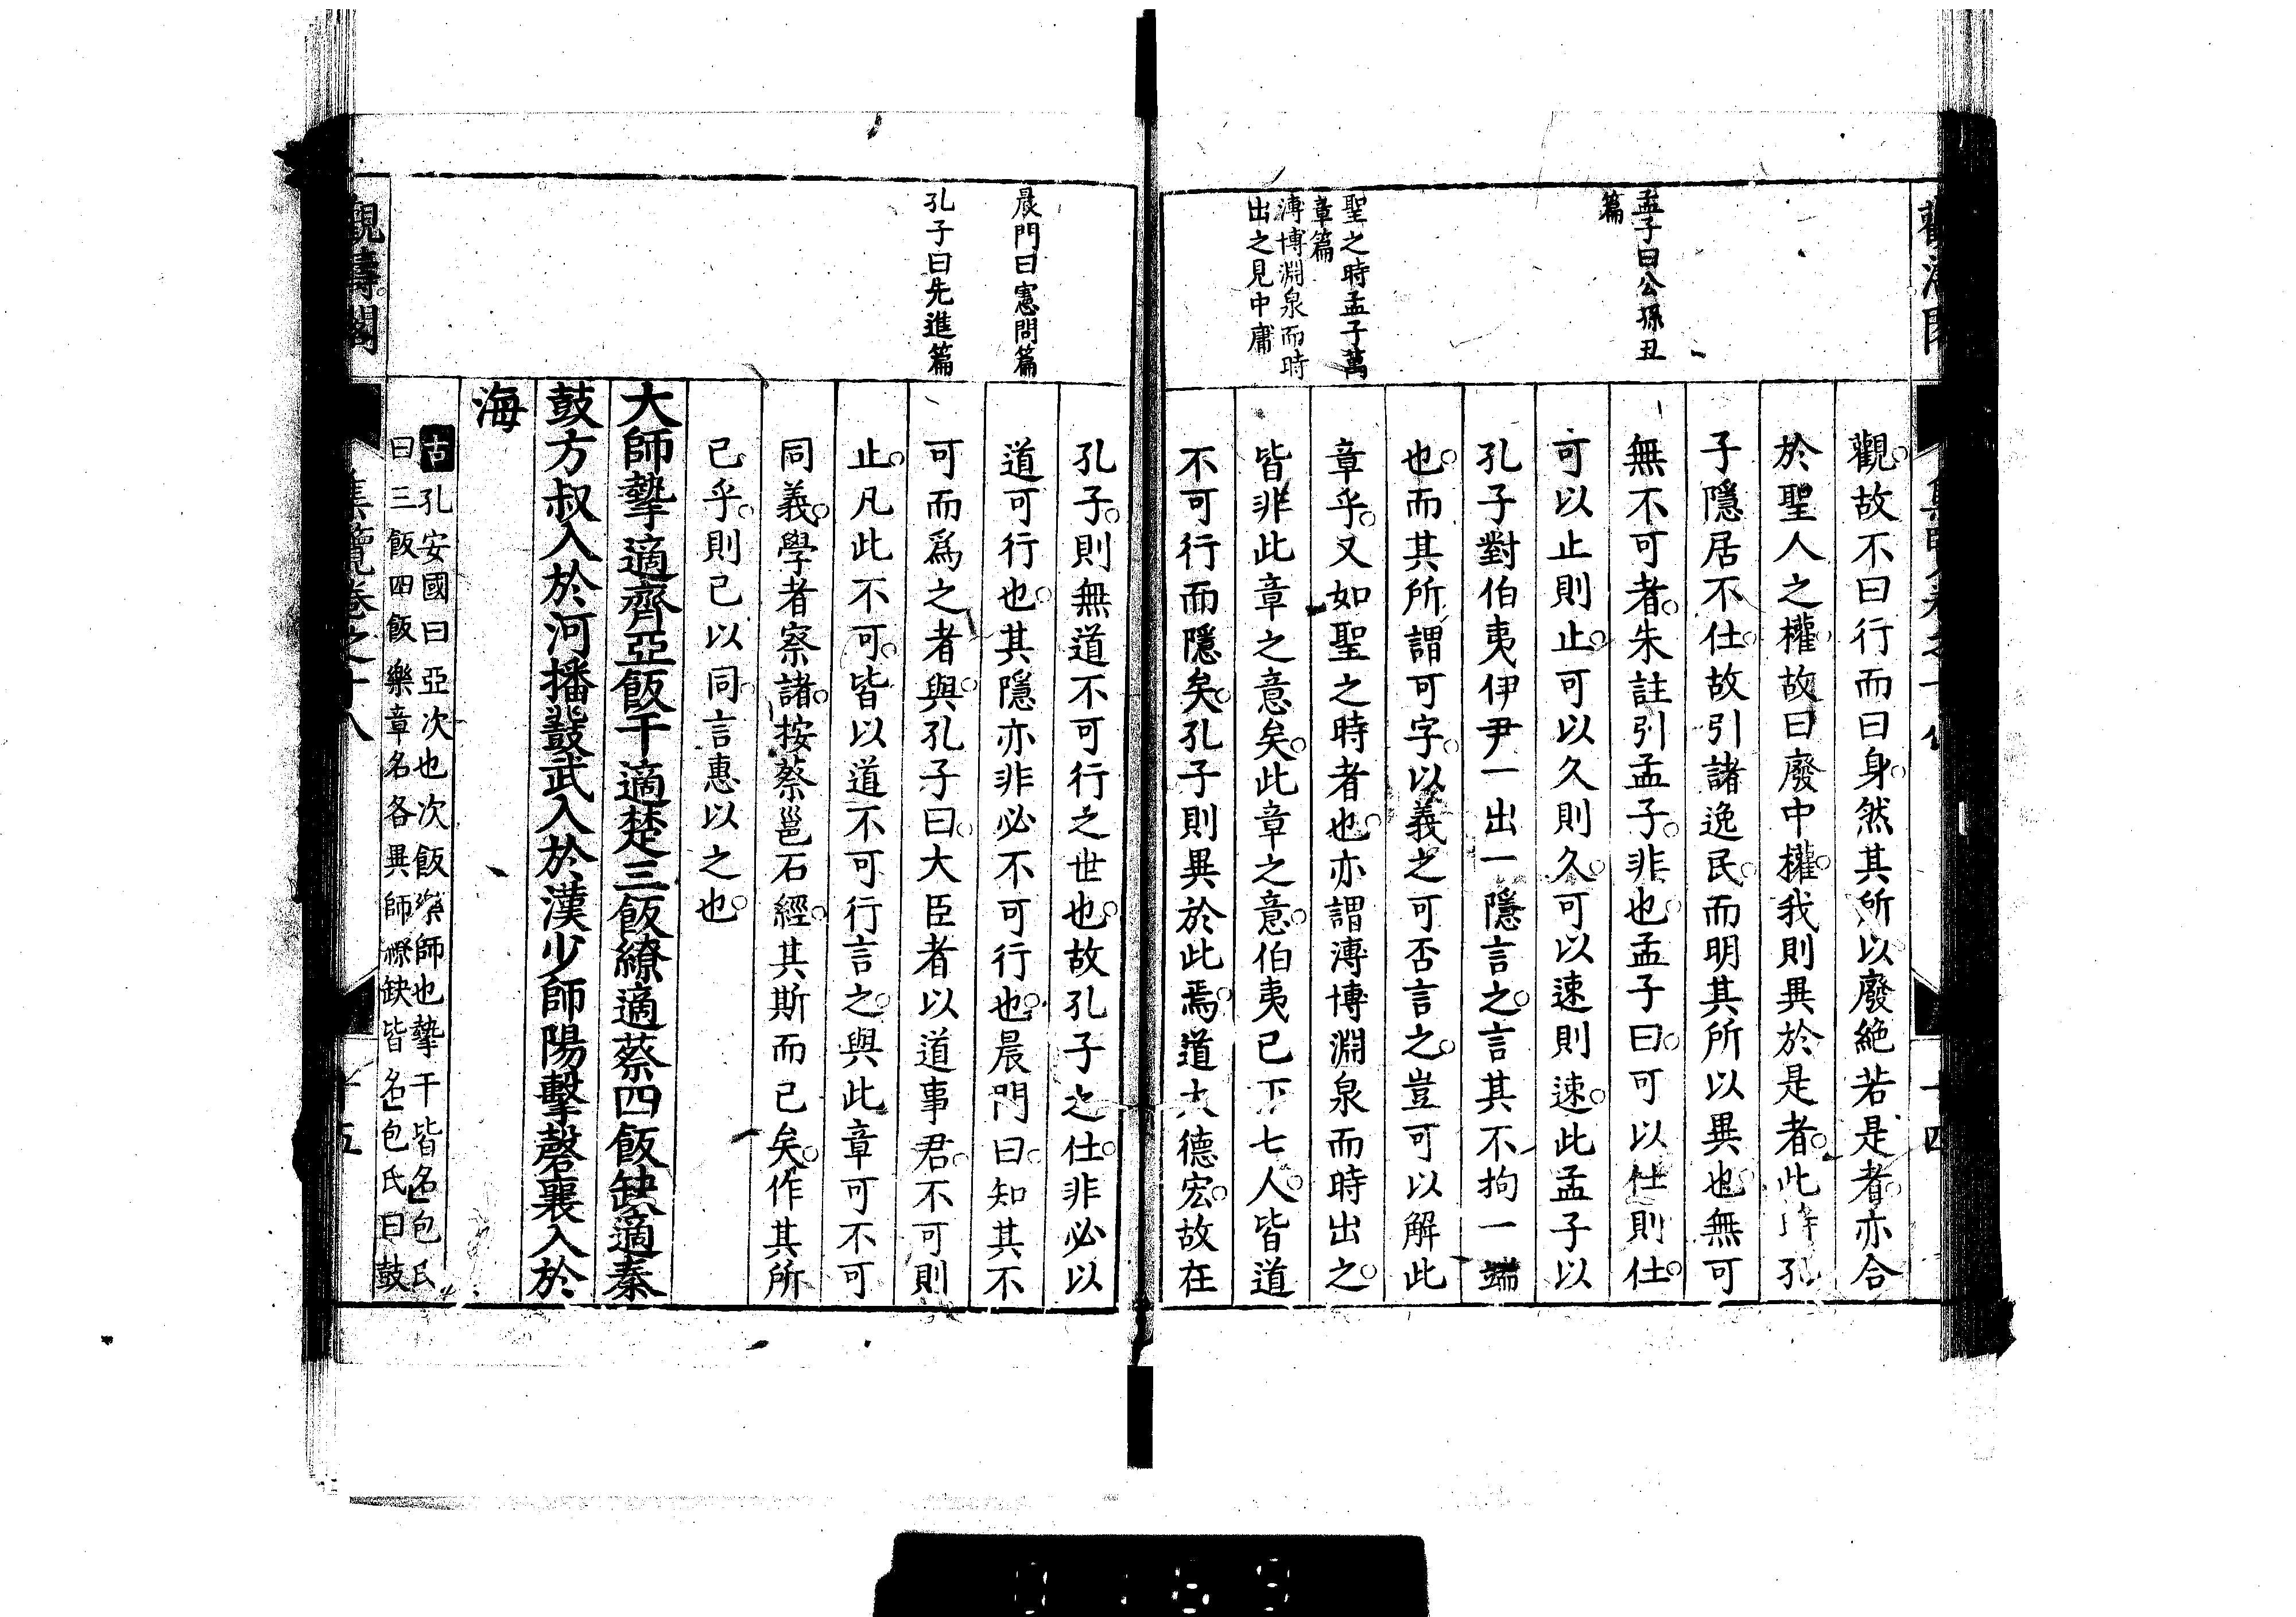 孟子曰公孫丑
篇
聖之時孟子萬
章篇
溥博淵泉而時
出之見中庸
觀故不曰行而曰身然其所以廢絶若是者亦合
於聖人之權故曰廢中權我則異於是者此孔
子隱居不仕故引諸逸民而明其所以異也無可
無不可者朱註引孟子非也孟子曰可以仕則仕
可以止則止可以久則久可以速則速此孟子以
孔子對伯夷伊尹一出一隱言之言其不拘一端
也而其所謂可字以義之可否言之豈可以解此
章乎又如聖之時者也亦謂溥博淵泉而時出之
皆非此章之意矣此章之意伯夷已下七人皆道
不可行而隱矣孔子則異於此焉道大德宏故在
十四
晨門曰憲問篇
孔子曰先進篇
孔子則無道不可行之世也故孔子之仕非必以
道可行也其隱亦非必不可行也晨門曰知其不
可而爲之者與孔子曰大臣者以道事君不可則
止凡此不可皆以道不可行言之與此章可不可
同義學者察諸按蔡邕石經其斯而已矣作其所
已乎則已以同言惠以之也
大師摯適齊亞飯干適楚三飯繚適蔡四飯缺適秦
鼓方叔入於河播鼗武入於漢少師陽擊磬襄入於
海
古孔安國曰亞次也次飯樂師也摯干皆名包氏
曰三飯四飯樂章名各異師繚缺皆名包氏曰鼓
觀濤閣
集覽卷之十八
十五